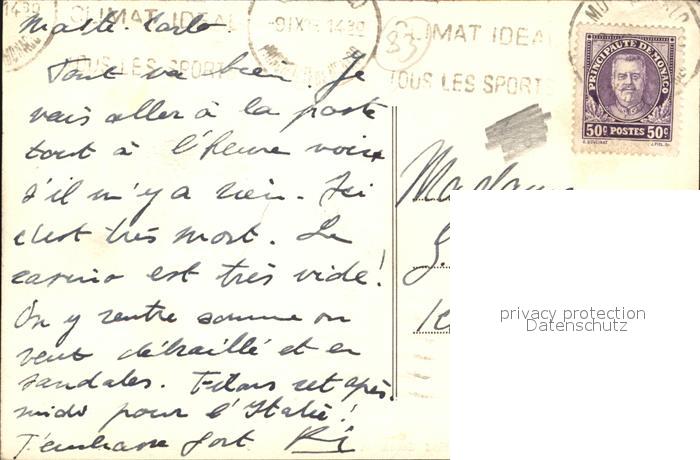 Monte-Carlo
Tout va bien Je
vais aller à la poste
tout à l'heure voir
s'il n'y a rien. Ici
c'est très mort. Le
casino est très vide!
On y rentre comme on
veut débraillé et en
sandales. cet après
midi pour l'Italie!
T'embrasse fort
CLIMAT IDEAL
TOUS LES SPORTS
-9 IX 1430
CLIMAT IDEAL
TOUS LES SPORTS
83
PRINCIPAUTE DE MONACO
50c POSTES 50c
Madame
G.
privacy protection
Datenschutz